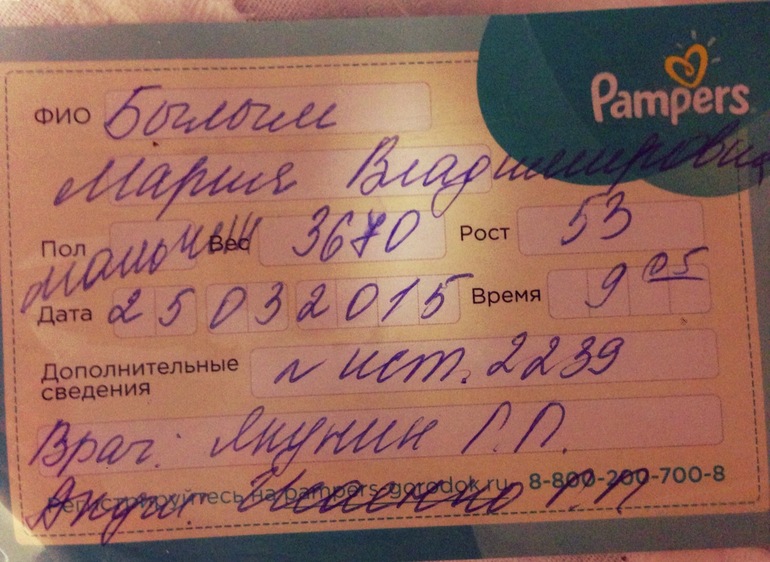 Pampers
ФИО Былым
Мария Владимировна
Пол мальчик Вес 3670 Рост 53
Дата 25 03 2015 Время 9 05
Дополнительные сведения № ист. 2239
Врач: Якунин Г. П.
Регистрируйтесь на pampers-gorodok.ru 8-800-200-700-8
Г П